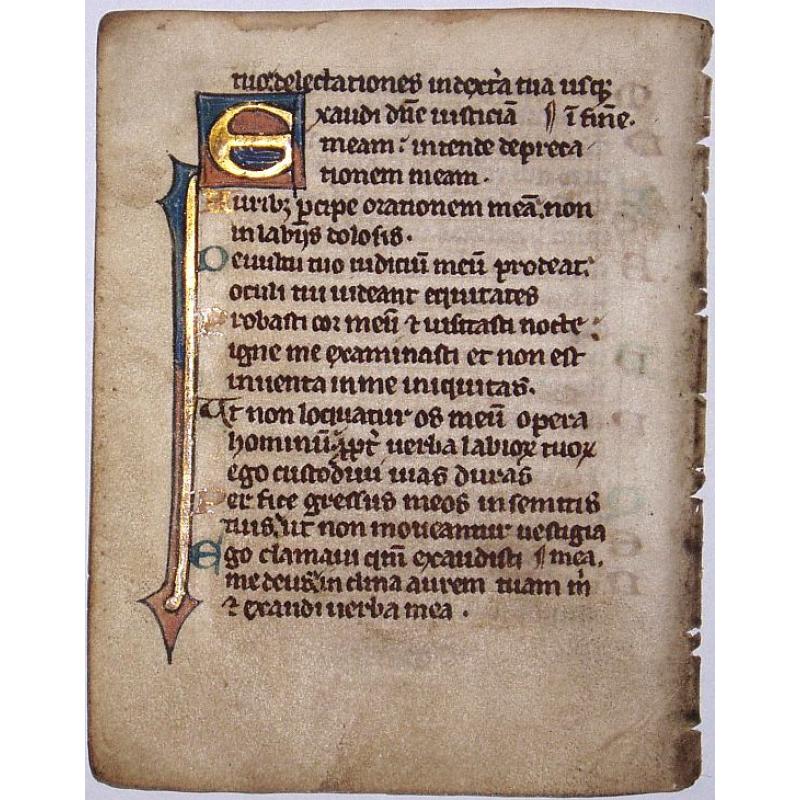 tuo. delectationes in dext̃a tua usq;
Exaudi dñe iusticiã ¶ ĩ fiñe.
meam: intende depreca
tionem meam.
Aurib; ꝑcipe orationem meã, non
in labijs dolosis.
De uultu tuo iudiciũ meũ prodeat:
oculi tui uideant equitates
Probasti cor meũ ⁊ uisitasti nocte:
igne me examinasti et non est
inuenta in me iniquitas.
Ut non loquatur os meũ opera
hominũ: ꝓpt̃ uerba labioꝝ tuoꝝ
ego custodiui uias duras
Per fice gressus meos in semitis
tuis, ut non moueantur uestigia
Ego clamaui qm̃ exaudisti ¶ mea.
me deus: in clina aurem tuam m̃
⁊ exaudi uerba mea.